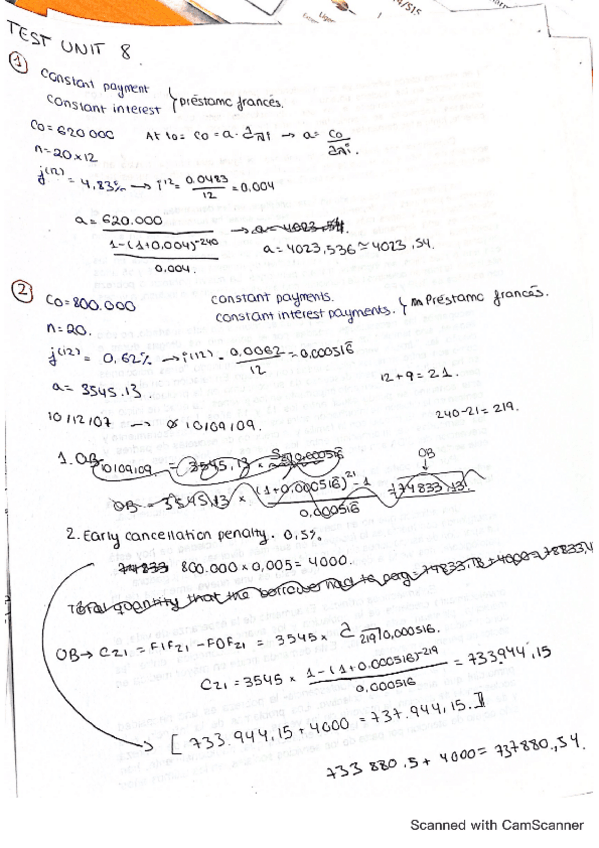 TEST UNIT 8.
①
Constant payment
Constant interest } préstamo francés.
C0 = 620000 At t0 = C0 = a · a n¬i → a = C0 / a n¬i.
n = 20 x 12
j(12) = 4,83% → i12 = 0.0483 / 12 = 0,004
a = 620.000 / (1-(1+0,004)^-240 / 0.004.) → a = 4023,54.
a = 4023,536 ≃ 4023,54.
②
C0 = 800.000 constant payments.
constant interest payments. } Préstamo francés.
n = 20.
j(12) = 0,62% → i(12) = 0,0062 / 12 = 0,000516
a = 3545.13. 12+9 = 21.
10/12/07 → 10/09/09. 240-21 = 219.
1. OB 10/09/09 = 3545,13 x S 21 0,000516
OB
OB = 3545,13 x (1+0,000516)^21 - 1 / 0,000516 = 74833,13
2. Early cancellation penalty. 0,5%.
74833 800.000 x 0,005 = 4000.
Total quantity that the borrower had to pay = 74833,13 + 4000 = 78833,
OB → C21 = F1F21 - F0F21 = 3545 x a 219¬0,000516.
C21 = 3545 x 1-(1+0.000516)^-219 / 0,000516 = 733.944,15
[ 733.944,15 + 4000 = 737.944,15. ]
733 880.5 + 4000 = 737880,54.
Scanned with CamScanner